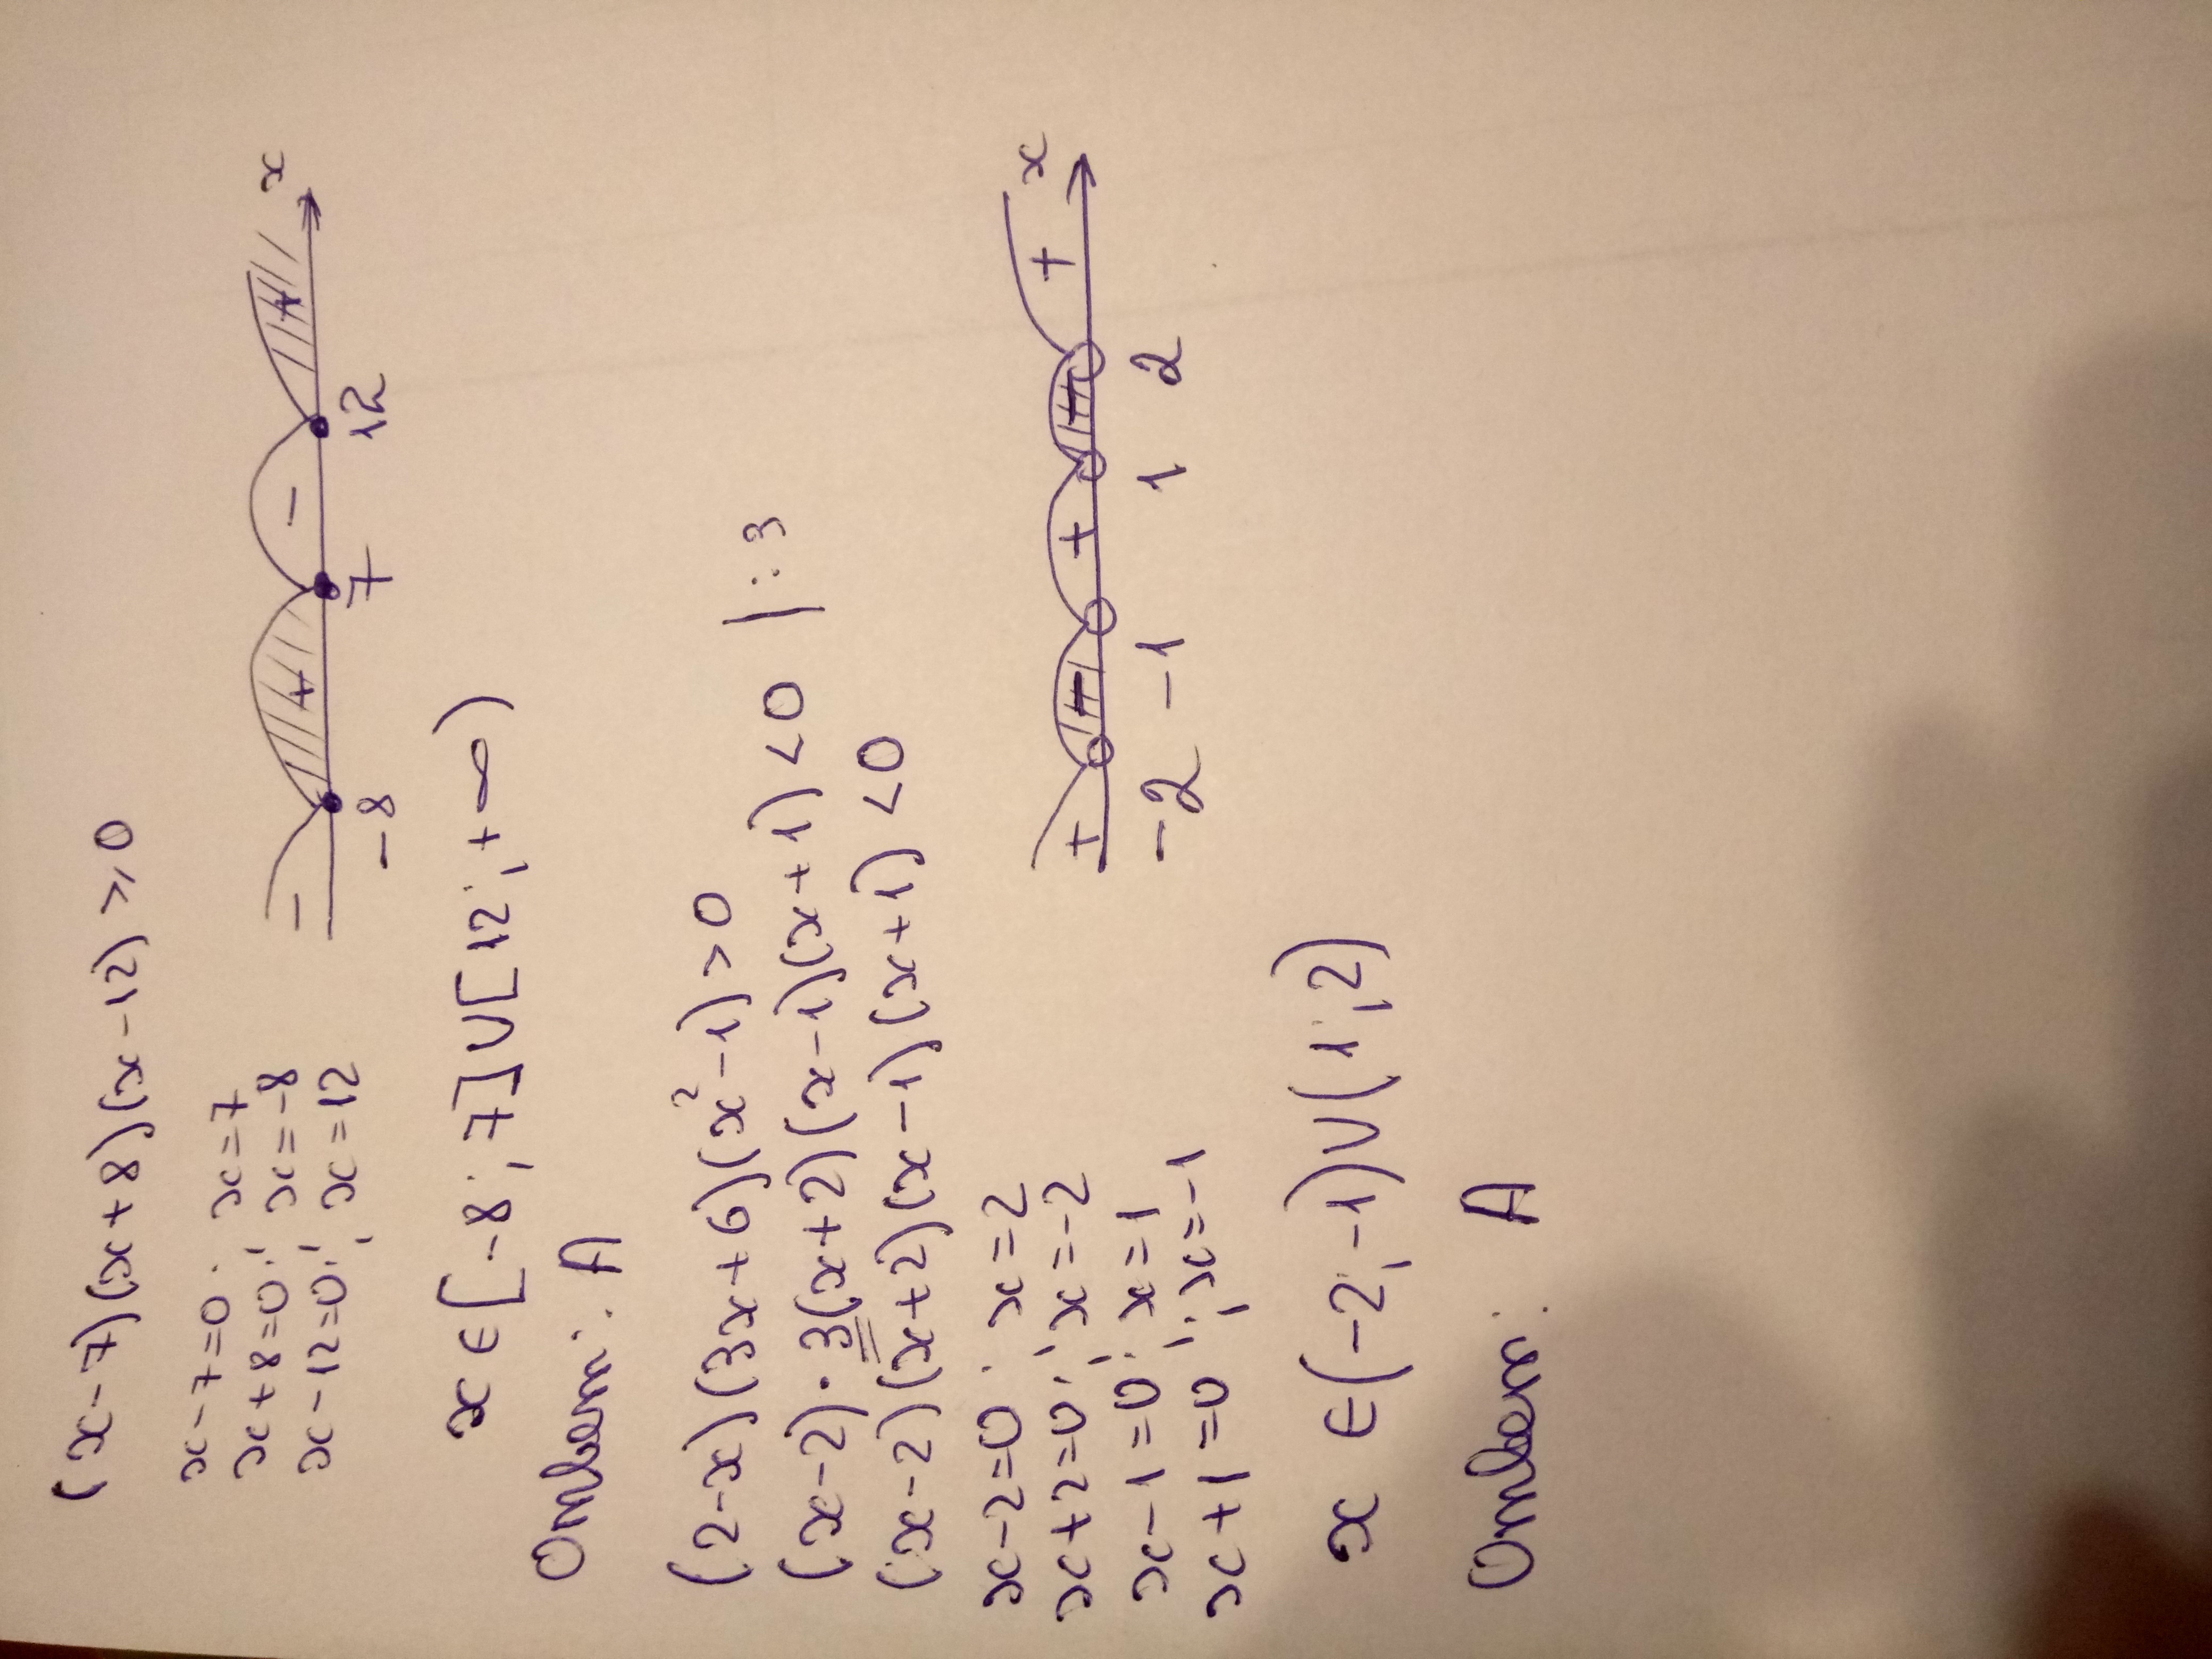 (x-7)(x+8)(x-12)⩾0
x-7=0; x=7
x+8=0; x=-8
x-12=0; x=12
- + - + x
-8 7 12
x∈[-8;7]∪[12;+∞)
Ответ: А
(2-x)(3x+6)(x²-1)>0
(x-2)·3(x+2)(x-1)(x+1)<0 |:3
(x-2)(x+2)(x-1)(x+1)<0
x-2=0; x=2
x+2=0; x=-2
x-1=0; x=1
x+1=0; x=-1
+ - + - + x
-2 -1 1 2
x∈(-2;-1)∪(1;2)
Ответ: А